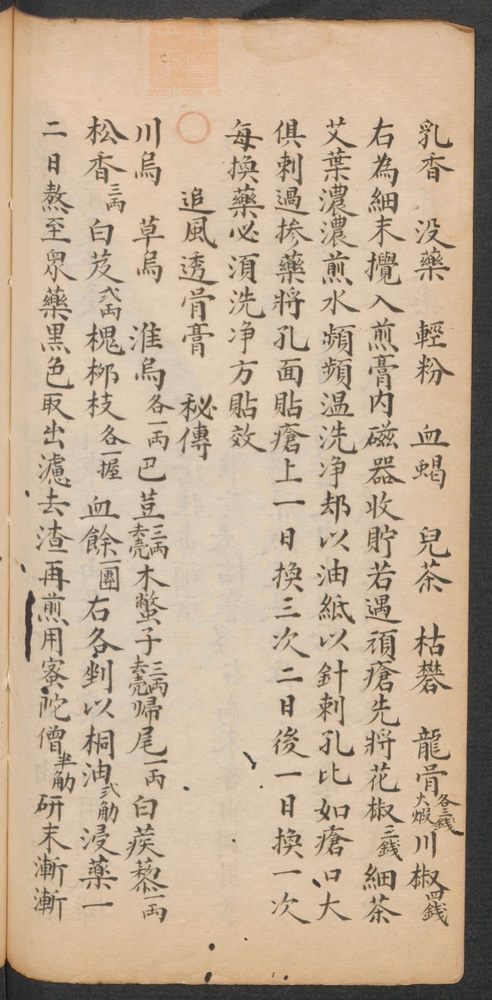 乳香 没藥 輕粉 血蝎 兒茶 枯礬 龍骨各三錢大煅川椒四錢
右為細末攪入煎膏内磁器收貯若遇頑瘡先將花椒三錢細茶
艾葉濃濃煎水頻頻温洗净却以油紙以針刺孔比如瘡口大
俱刺過摻藥將孔面貼瘡上一日換三次二日後一日換一次
每換藥必須洗净方貼效
○ 追風透骨膏 秘傳
川烏 草烏 淮烏各一两巴荳三两去壳木鱉子三两去壳歸尾一两白蒺藜一两
松香三两白芨弍两槐柳枝各一握血餘一團右各剉以桐油弍觔浸藥一
二日熬至衆藥黑色取出濾去渣再煎用蜜陀僧半觔研末漸漸